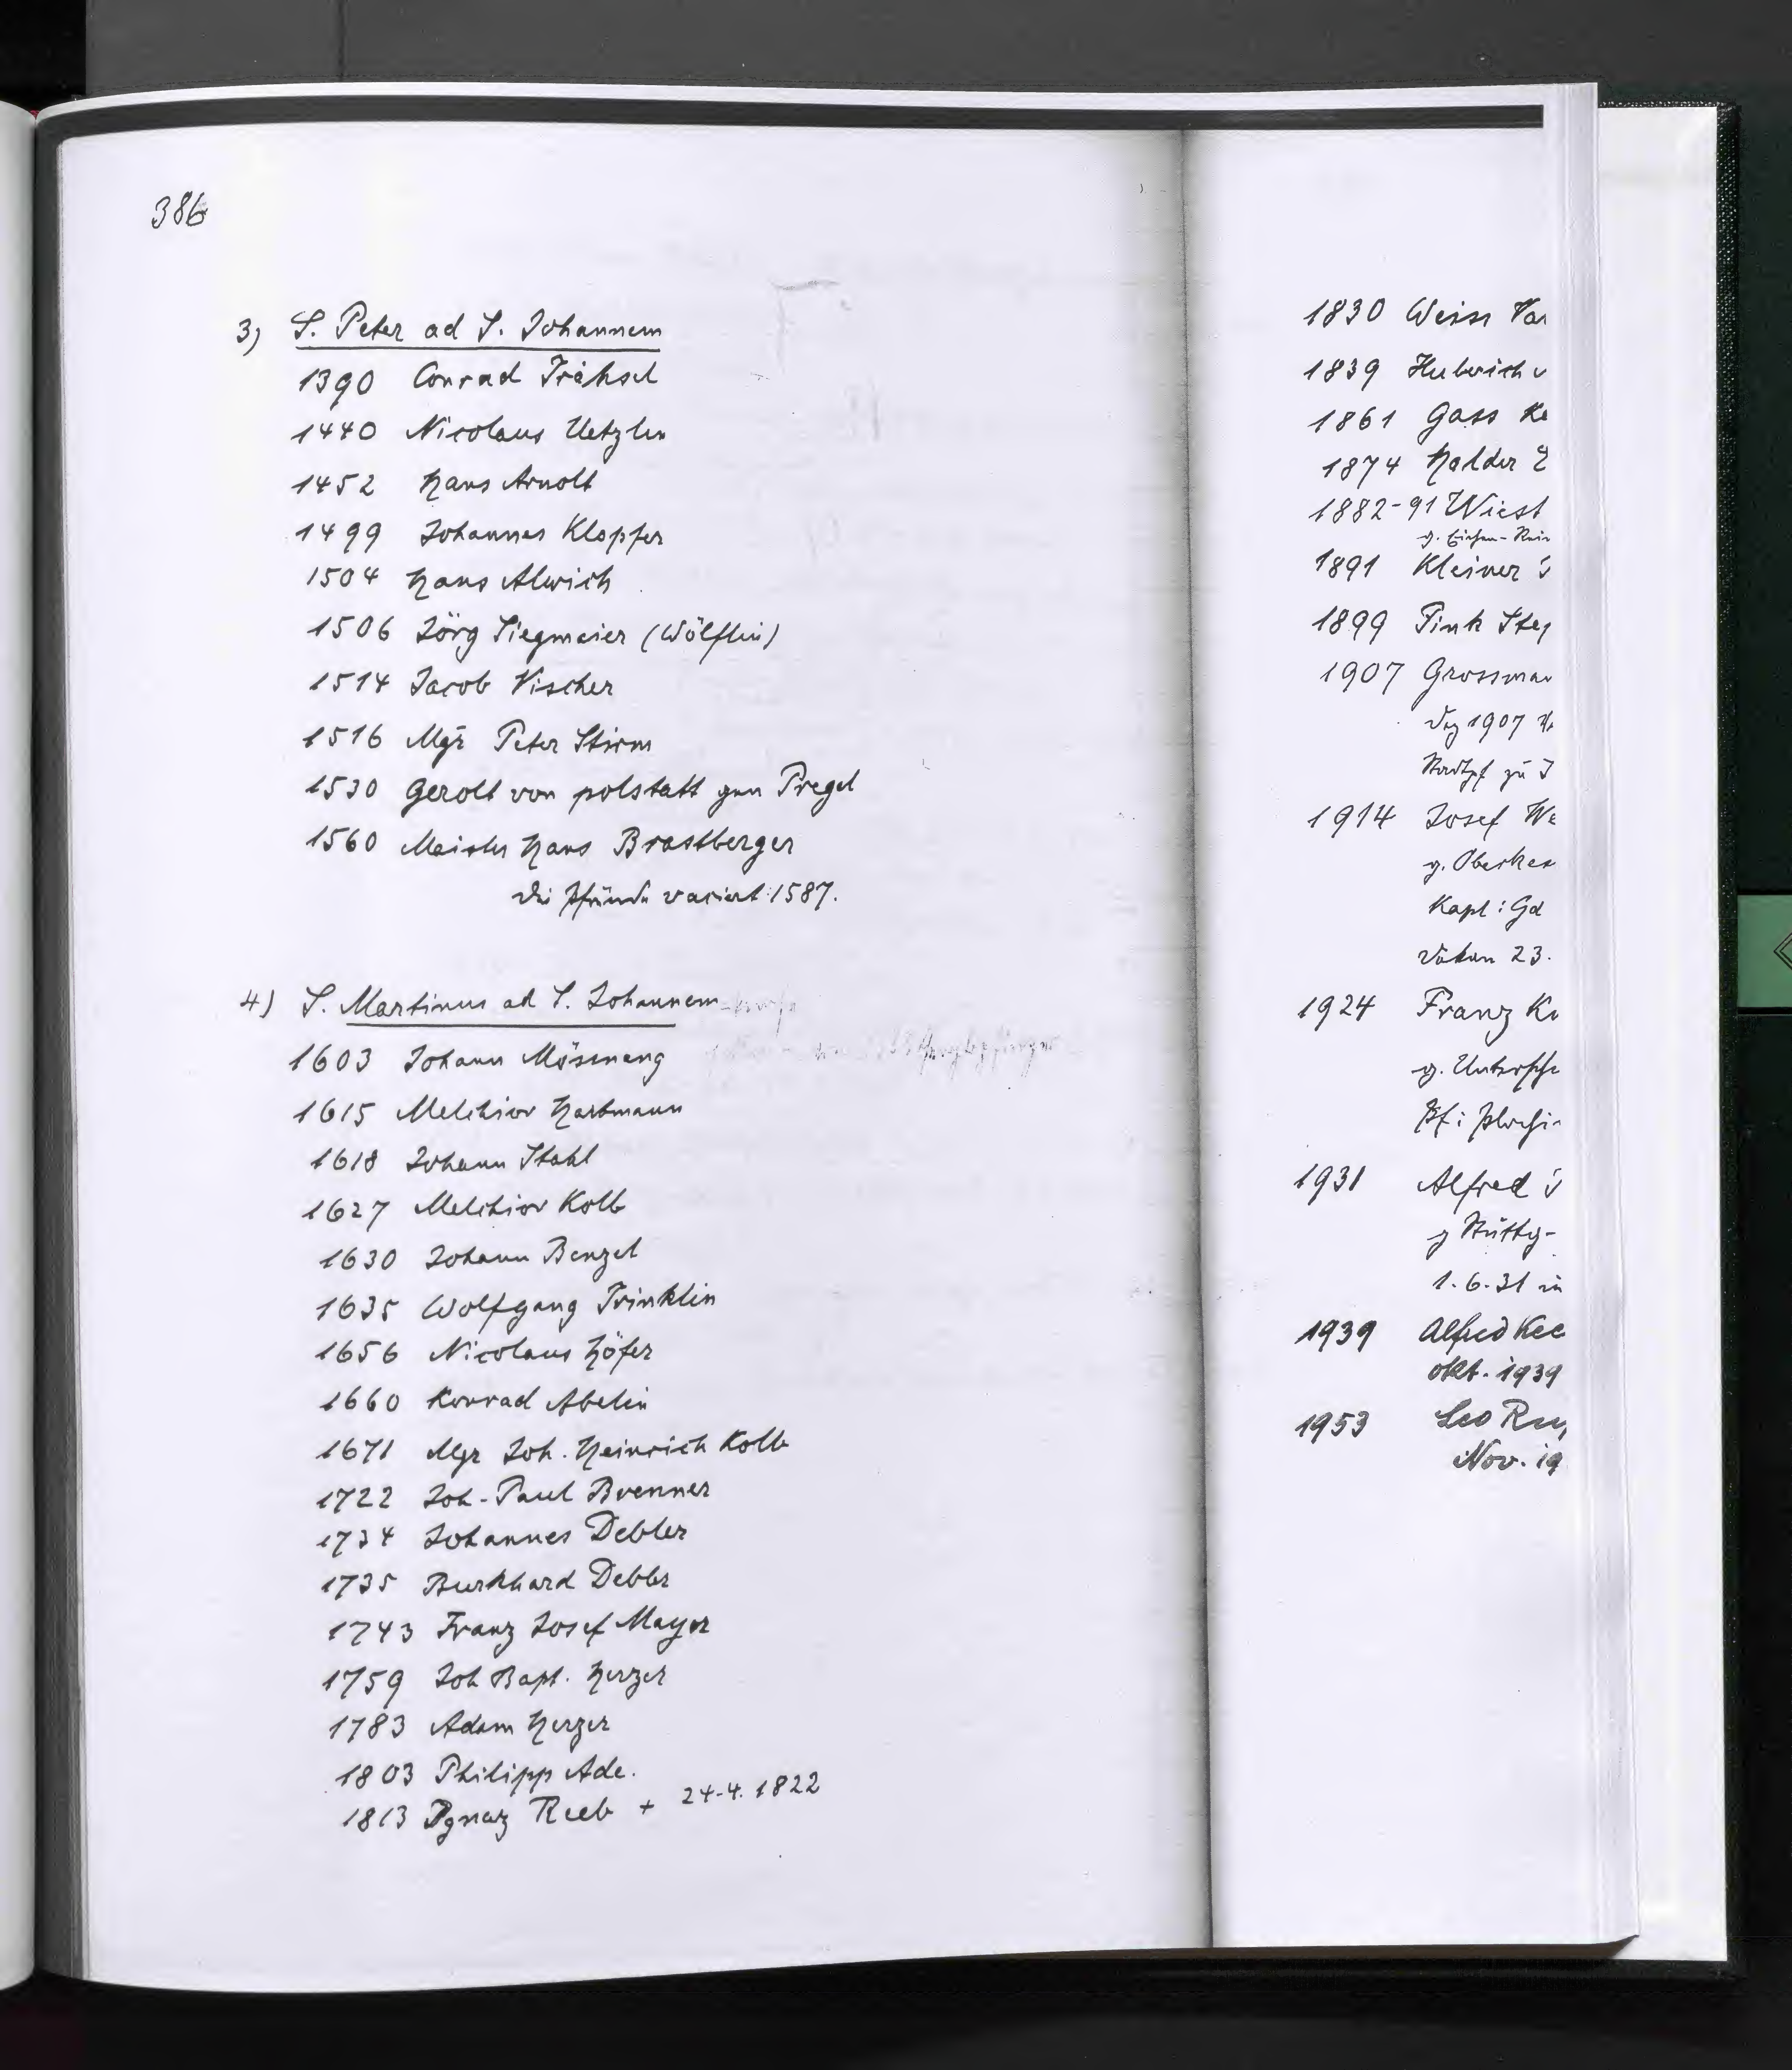 386
3) S. Peter ad S. Johannem
1390 Conrad Trähsel
1440 Nicolaus Uetzlin
1452 Hans Arnolt
1499 Johannes Klopfer
1504 Hans Alwich
1506 Jörg Siegmeier (Wölflin)
1514 Jacob Vischer
1516 Mgr Peter Sturm
1530 Gerolt von polstatt gen Pregel
1560 Meister Hans Brastberger
Die Pfründe vaciert 1587.
4) S. Martinus ad S. Johannem
1603 Johann Mösnang
1615 Melchior Hartmann
1618 Johann Stahl
1627 Melchior Kolb
1630 Johann Benzel
1635 Wolfgang Trinklin
1656 Nicolaus Höfer
1660 Konrad Abelin
1671 Mgr Joh. Heinrich Kolb
1722 Joh. Paul Brenner
1734 Johannes Debler
1735 Burkhard Debler
1743 Franz Josef Mayer
1759 Joh Bapt. Herzer
1783 Adam Herzer
1803 Philipp Ade.
1813 Ignaz Reeb + 24.4.1822
1830 Weiss
1839
1861 Gass
1874 Halder
1882-91 Wiest
1891 Kleiner
1899 Pink
1907
1907
zu
1914 Josef
g.
Kapl:
23.
1924 Franz
g.
Pf:
1931 Alfred
g
1.6.31 in
1939 Alfred
Okt. 1939
1953 Leo
Nov.